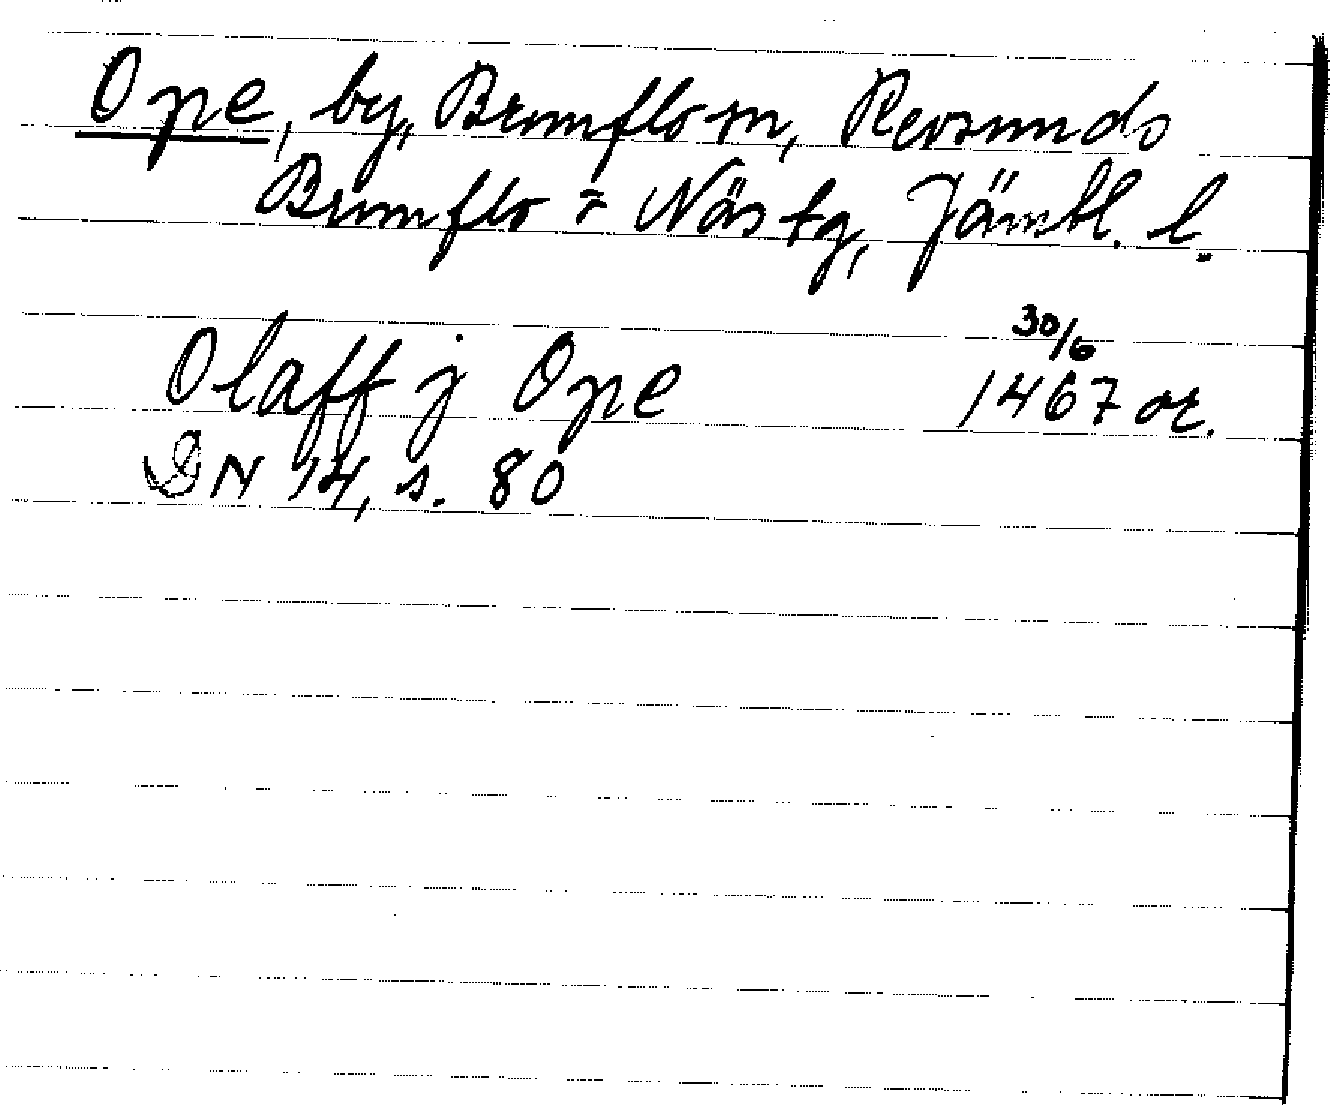 Ope, by, Brunflo sn, Revsunds
Brunflo = Näs tg, Jämtl. l.
30/6
Olaff j Ope 1467 or.
DN 14, s. 80